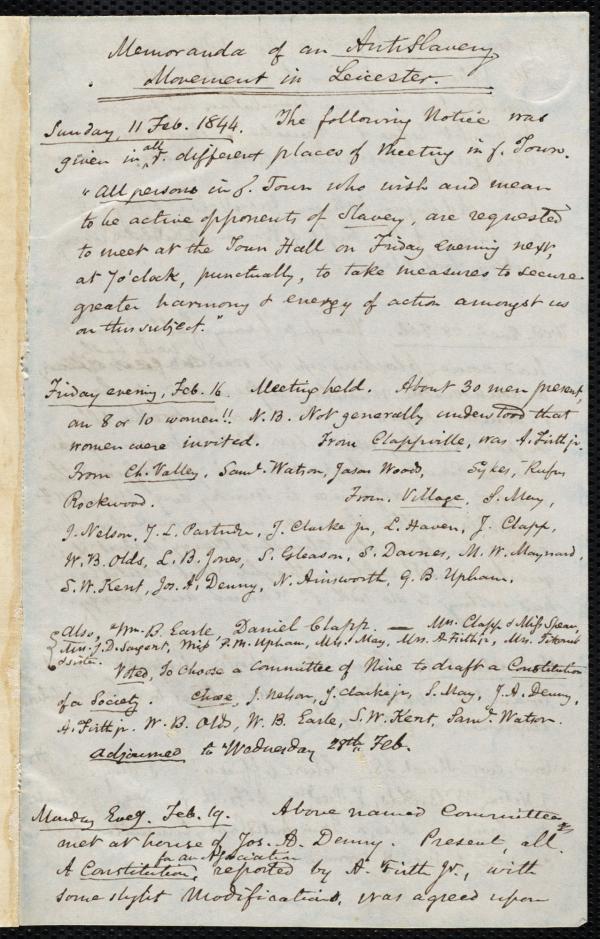 Memoranda of an AntiSlavery
Movement in Leicester.
Sunday, 11 Feb. 1844. The following Notice was
given in all yͤ different places of Meeting in yͤ Town.
"All persons in yͤ Town who wish and mean
to be active opponents of Slavery, are requested
to meet at the Town Hall on Friday evening next,
at 7 o'clock, punctually, to take measures to secure
greater harmony & energy of action amongst us
on this subject."
Friday evening, Feb. 16. Meeting held. About 30 men present,
an 8 or 10 women!! N.B. Not generally understood that
women were invited. From Clappville, was A. Firth jr.
From Ch. Valley, Saml. Watson, Jason Woods, Sykes, Rufus
Rockwood. From Village, S. May,
J. Nelson, J. L. Partridge, J. Clarke jr, L. Haven, J. Clapp,
W. B. Olds, L. B. Jones, S. Gleason, S. Downes, M. W. Maynard,
S. W. Kent, Jos. A. Denny, N. Ainsworth, G. B. Upham.
Also, Wm. B. Earle, Daniel Clapp. — Mrs. Clapp & Miss Spear,
Mrs. J. D. Sargent, Miss F. M. Upham, Mrs. May, Mrs. A. Firth jr, Mrs.
& sister.
Voted, To choose a Committee of Nine to draft a Constitution
of a Society. Chose, J. Nelson, J. Clarke jr, S. May, J. A. Denny,
A. Firth jr. W. B. Olds, W. B. Earle, S. W. Kent, Saml. Watson.
Adjourned to Wednesday 28th. Feb.
Monday Eveg. Feb. 19. Above named Committee
met at house of Jos. A. Denny. Present, all.
A Constitution for an Association, reported by A. Firth Jr., with
some slight modifications, was agreed upon